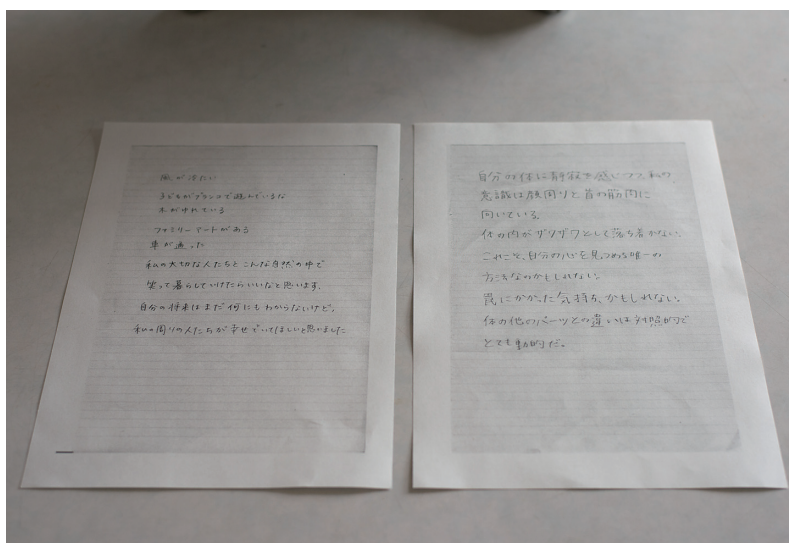 風が冷たい
子どもがブランコで遊んでいるな
木がゆれている
ファミリーマートがある
車が通った
私の大切な人たちとこんな自然の中で
笑って暮らしていけたらいいなと思います。
自分の将来はまだ何にもわからないけど、
私の周りの人たちが幸せでいてほしいと思いました
自分の体に静寂を感じつつ、私の
意識は顔周りと首の筋肉に
向いている。
体の内がザワザワとして落ち着かない。
これこそ、自分の心を見つめる唯一の
方法なのかもしれない。
罠にかかった気持ち、かもしれない。
体の他のパーツとの違いは対照的で
とても動的だ。